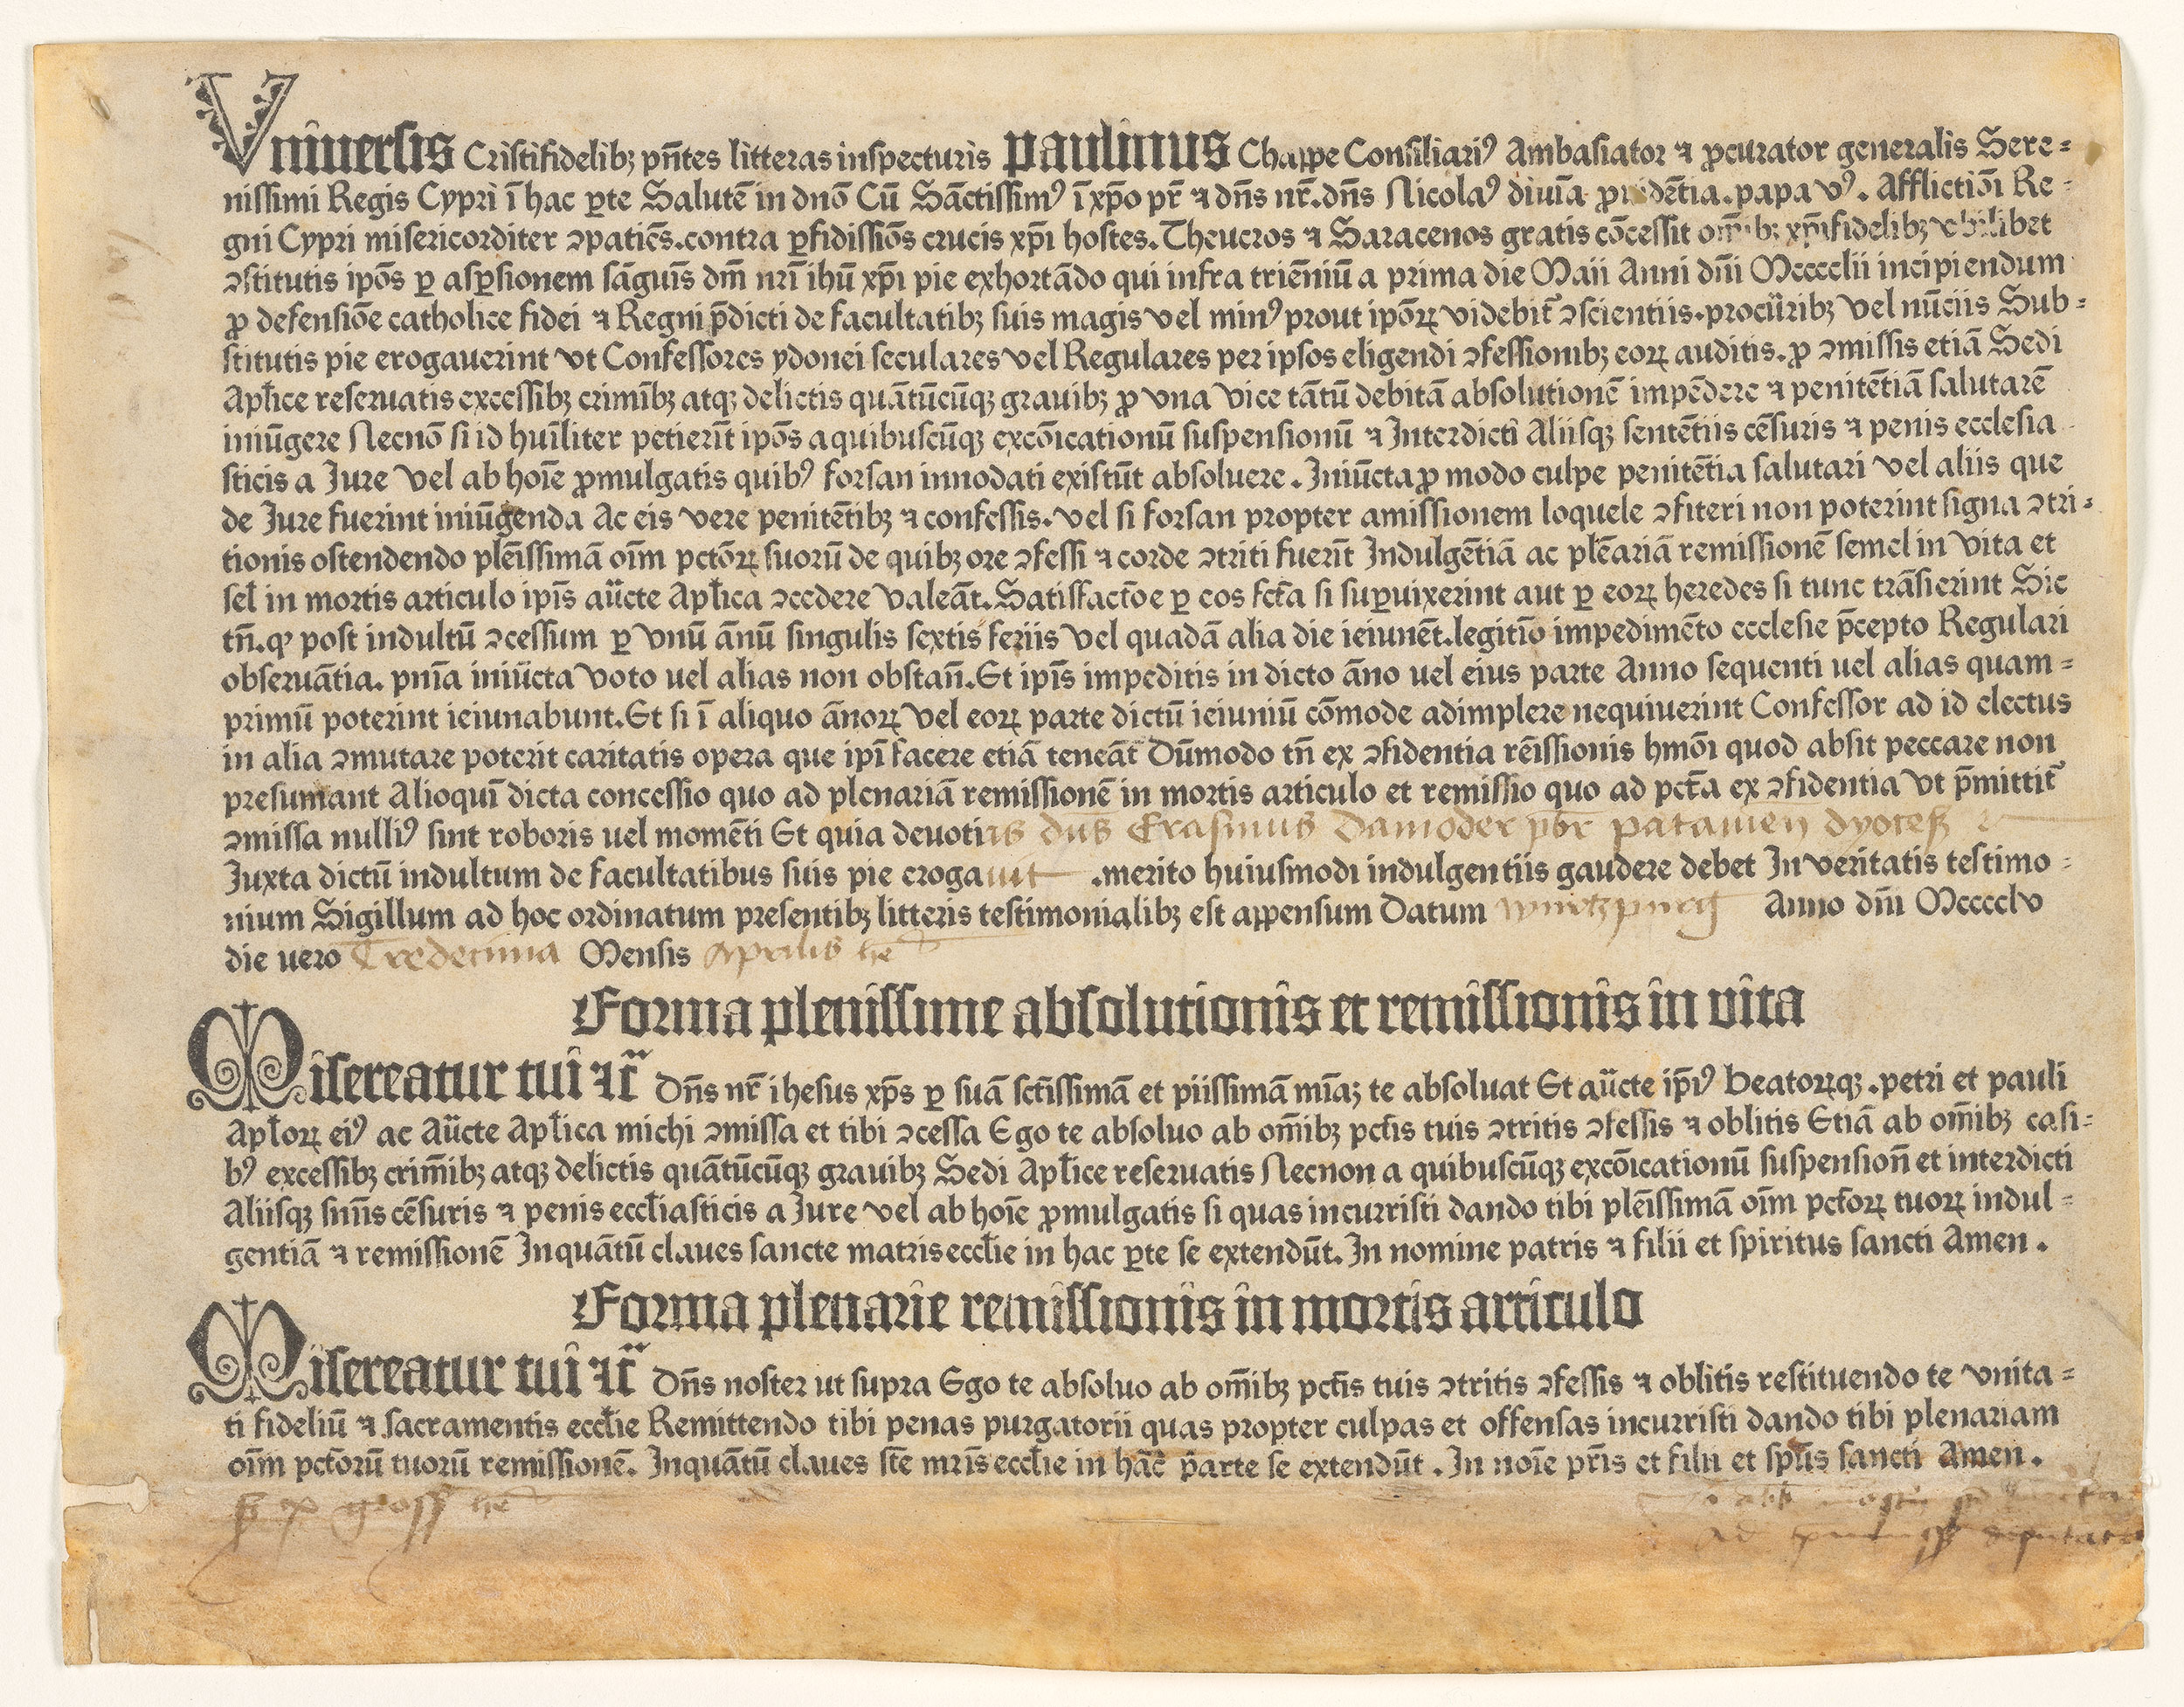 Vniuersis Cristifidelibꝫ pn̄tes litteras inspecturis Paulinus Chappe Consiliariꝰ Ambasiator ⁊ ꝓcurator generalis Sere=
nissimi Regis Cypri ī hac ꝑte Salutē in dnō Cū Sāctissimꝰ ī xp̄o pr̄ ⁊ dn̄s nr̄. dn̄s Nicolaꝰ diuīa ꝓuidētia. papa vꝰ. Afflictiōi Re=
gni Cypri misericorditer ꝯpatiēs. contra ꝑfidissiōs crucis xp̄i hostes. Theucros ⁊ Saracenos gratis cōcessit om̄ibꝫ xp̄ifidelibꝫ vbilibet
ꝯstitutis ipōs ꝑ aspꝑsionem sāguīs dn̄i nr̄i ihū xp̄i pie exhortādo qui infra triēniū a prima die Maii Anni dn̄i Mcccclii incipiendum
ꝓ defensiōe catholice fidei ⁊ Regni p̄dicti de facultatibꝫ suis magis vel minꝰ prout ipōꝝ videbit̄ ꝯscientiis. procūribꝫ vel nūciis Sub=
stitutis pie erogauerint vt Confessores ydonei seculares vel Regulares per ipsos eligendi ꝯfessionibꝫ eoꝝ auditis. ꝓ ꝯmissis etiā Sedi
Apl̄ice reseruatis excessibꝫ crimībꝫ atqꝫ delictis quātūcūqꝫ grauibꝫ ꝓ vna vice tātū debitā absolutionē impēdere ⁊ penitētiā salutarē
iniūgere Necnō si id huīliter petierīt ipōs a quibuscūqꝫ excōicationū suspensionū ⁊ Interdicti Aliisqꝫ sentētiis cēsuris ⁊ penis ecclesia
sticis a Jure vel ab hoīe ꝓmulgatis quibꝰ forsan innodati existūt absoluere. Iniūcta ꝓ modo culpe penitētia salutari vel aliis que
de Jure fuerint iniūgenda Ac eis vere penitētibꝫ ⁊ confessis. vel si forsan propter amissionem loquele ꝯfiteri non poterint signa ꝯtri=
tionis ostendendo plēissimā oīm pctōꝝ suorū de quibꝫ ore ꝯfessi ⁊ corde ꝯtriti fuerīt Indulgētiā ac plēariā remissionē semel in vita et
sel̄ in mortis articulo ipīs aūcte Apl̄ica ꝯcedere valeāt. Satisfactōe ꝑ eos fct̄a si suꝑuixerint aut ꝑ eoꝝ heredes si tunc trāsierint Sic
tn̄. qꝰ post indultū ꝯcessum ꝑ vnū ānū singulis sextis feriis vel quadā alia die ieiunēt. legitīo impedimēto ecclesie p̄cepto Regulari
obseruātia. pnīa iniūcta voto uel alias non obstan̄. Et ipīs impeditis in dicto āno uel eius parte Anno sequenti uel alias quam=
primū poterint ieiunabunt. Et si ī aliquo ānoꝝ vel eoꝝ parte dictū ieiuniū cōmode adimplere nequiuerint Confessor ad id electus
in alia ꝯmutare poterit caritatis opera que ipī facere etiā teneāt Dūmodo tn̄ ex ꝯfidentia rēissionis hmōi quod absit peccare non
presumant Alioquī dicta concessio quo ad plenariā remissionē in mortis articulo et remissio quo ad pct̄a ex ꝯfidentia vt p̄mittit̄
ꝯmissa nulliꝰ sint roboris uel momēti Et quia deuotius dn̄s Erasmus Damoder pbr̄ patauien dyoces
Juxta dictū indultum de facultatibus suis pie erogauit .merito huiusmodi indulgentiis gaudere debet In veritatis testimo=
nium Sigillum ad hoc ordinatum presentibꝫ litteris testimonialibꝫ est appensum Datum wurtzpurg Anno dn̄i Mcccclv
die uero Tredecima Mensis Aprilis
Forma plenissime absolutionis et remissionis in vita
Misereatur tui ⁊c̄ Dn̄s nr̄ ihesus xp̄s ꝑ suā sct̄issimā et piissimā mīaꝫ te absoluat Et aūcte ipīꝰ beatoꝝqꝫ. petri et pauli
Apl̄oꝝ eiꝰ ac Aūcte Apl̄ica michi ꝯmissa et tibi ꝯcessa Ego te absoluo ab om̄ibꝫ pct̄is tuis ꝯtritis ꝯfessis ⁊ oblitis Etiā ab om̄ibꝫ casi=
bꝰ excessibꝫ crim̄ibꝫ atqꝫ delictis quātūcūqꝫ grauibꝫ Sedi Apl̄ice reseruatis Necnon a quibuscūqꝫ excōicationū suspension̄ et interdicti
Aliisqꝫ snīis cēsuris ⁊ penis eccl̄iasticis a Jure vel ab hoīe ꝓmulgatis si quas incurristi dando tibi plēissimā oīm pct̄oꝝ tuoꝝ indul=
gentiā ⁊ remissionē Inquātū claues sancte matris eccl̄ie in hac ꝑte se extendūt. In nomine patris ⁊ filii et spiritus sancti Amen.
Forma plenarie remissionis in mortis articulo
Misereatur tui ⁊c̄ Dn̄s noster ut supra Ego te absoluo ab om̄ibꝫ pct̄is tuis ꝯtritis ꝯfessis ⁊ oblitis restituendo te vnita=
ti fideliū ⁊ sacramentis eccl̄ie Remittendo tibi penas purgatorii quas propter culpas et offensas incurristi dando tibi plenariam
oīm pct̄orū tuorū remissionē. Inquātū claues st̄e mr̄is eccl̄ie in hāc p̄arte se extendūt. In noīe pr̄is et filii et spūs sancti Amen.